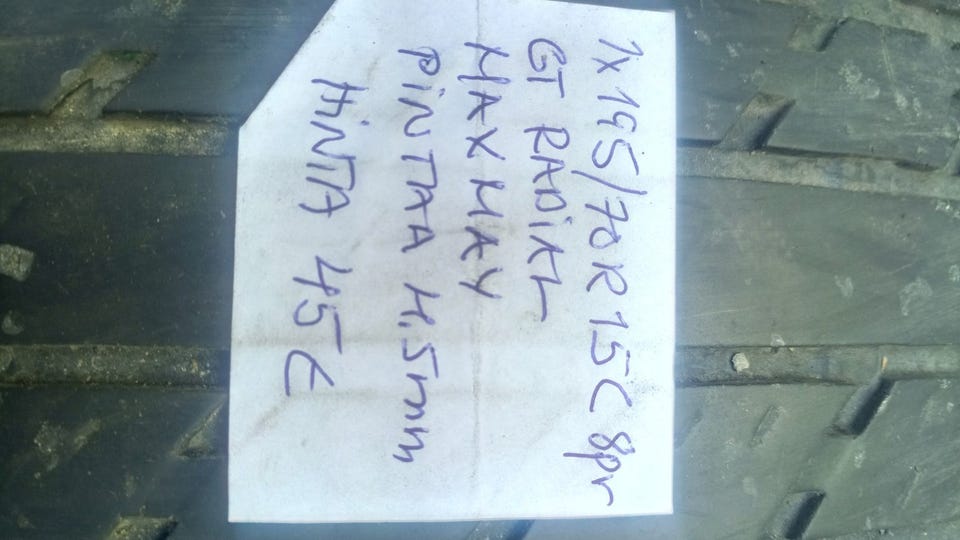 1x195/70R15C 8pr
GT RADiAL
MAXMAY
PiNTAA 4.5mm
HiNTA 45€